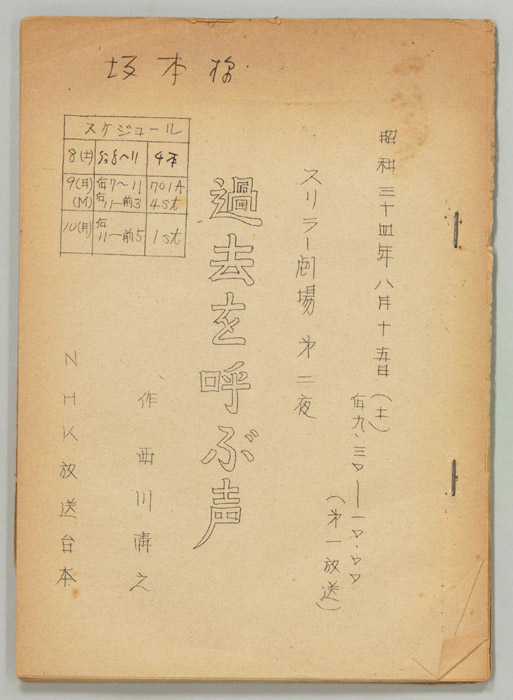 坂本様
昭和三十四年八月十五日(土)
后九・三〇―一〇・〇〇
(第一放送)
スリラー劇場 第二夜
過去を呼ぶ声
作 西川清之
NHK放送台本
スケジュール
8(土) 后8〜11 4本
9(日)(M) 后7〜11 701A.
后11〜前3 4st
10(月) 后11〜前5 1st